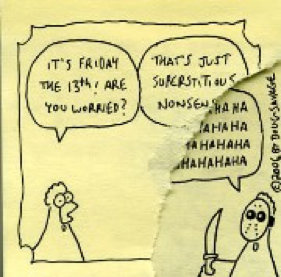 IT'S FRIDAY
THE 13th! ARE
YOU WORRIED?
THAT'S JUST
SUPERSTITIOUS
NONSEN
HAHA
AHAHA
AHAHAHA
HAHAHAHA
©2006 BY DOUG SAVAGE